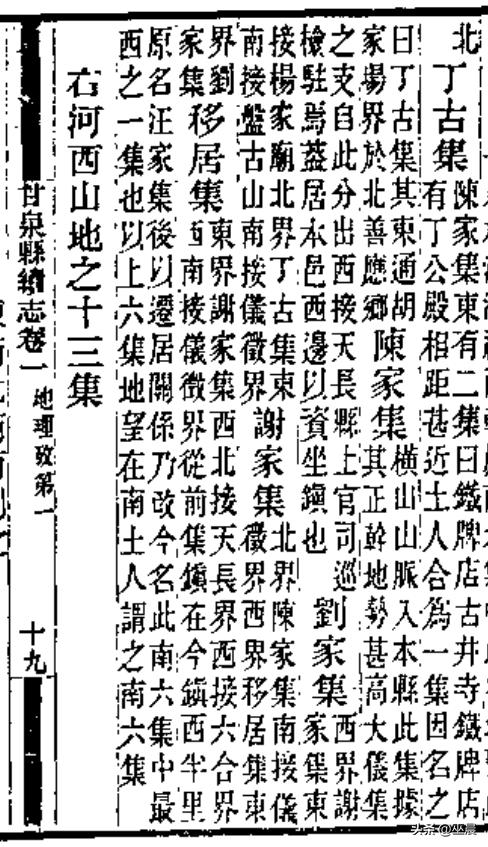 北
丁古集
陳家集東有二集曰鐵牌店古井寺鐵牌店
有丁公殿相距甚近土人合爲一集因名之
曰丁古集其東通胡
家場界於北善應鄉
陳家集
橫山山脈入本縣此集據
其正幹地勢甚高大儀集
之支自此分出西接天長縣上官司巡
檢駐焉蓋居本邑西邊以資坐鎮也
劉家集
西界謝
家集東
接楊家廟北界丁古集東
南接盤古山南接儀徵界
謝家集
北界陳家集南接儀
徵界西界移居集東
界劉
家集
移居集
東界謝家集西北接天長界西接六合界
西南接儀徵界從前集鎮在今鎮西半里
原名汪家集後以遷居關係乃改今名此南六集中最
西之一集也以上六集地望在南土人謂之南六集
右河西山地之十三集
甘泉縣續志卷一 地理攷第一 十九
头条 @坐晨